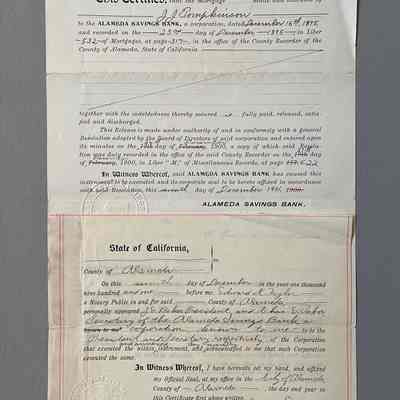 This Certifies, that the Mortgage made and executed by
J. J. Tompkinson
to the ALAMEDA SAVINGS BANK, a corporation, dated December 16th 1895
and recorded on the 23rd day of December 1895 in Liber
532 of Mortgages, at page 317 in the office of the County Recorder of the
County of Alameda, State of California
together with the indebtedness thereby secured is fully paid, released, satis-
fied and discharged.
This Release is made under authority of and in conformity with a general
Resolution adopted by the Board of Directors of said corporation and entered upon
its minutes on the day of 1900, a copy of which said Resolu-
tion was duly recorded in the office of said County Recorder on the day of
February, 1900, in Liber "M," of Miscellaneous Records, at page 522
In Witness Whereof, Said ALAMEDA SAVINGS BANK, has caused this
instrument to be executed and its corporate seal to be hereto affixed in accordance
with said Resolution, this seventh day of December 1901
ALAMEDA SAVINGS BANK,
State of California,
County of Alameda
On this seventh day of December in the year one thousand
nine hundred and one before me
a Notary Public in and for said County of Alameda
personally appeared President, and
Secretary of the Alameda Savings Bank a
corporation known to me to be the
President and Secretary respectively of the Corporation
that executed the within instrument, and acknowledged to me that such Corporation
executed the same.
In Witness Whereof, I have hereunto set my hand, and affixed
my Official Seal, at my office in the City of Alameda
County of Alameda the day and year in
this Certificate first above written